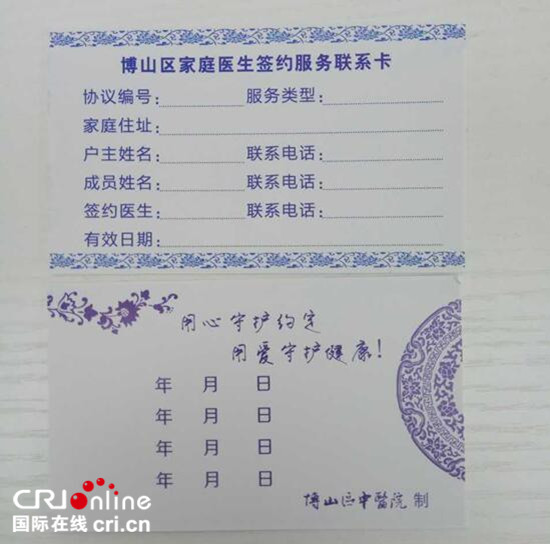 博山区家庭医生签约服务联系卡
协议编号： 服务类型：
家庭住址：
户主姓名： 联系电话：
成员姓名： 联系电话：
签约医生： 联系电话：
有效日期：
用心守护约定
用爱守护健康！
年 月 日
年 月 日
年 月 日
年 月 日
博山区中醫院 制
CRI online
国际在线 cri.cn